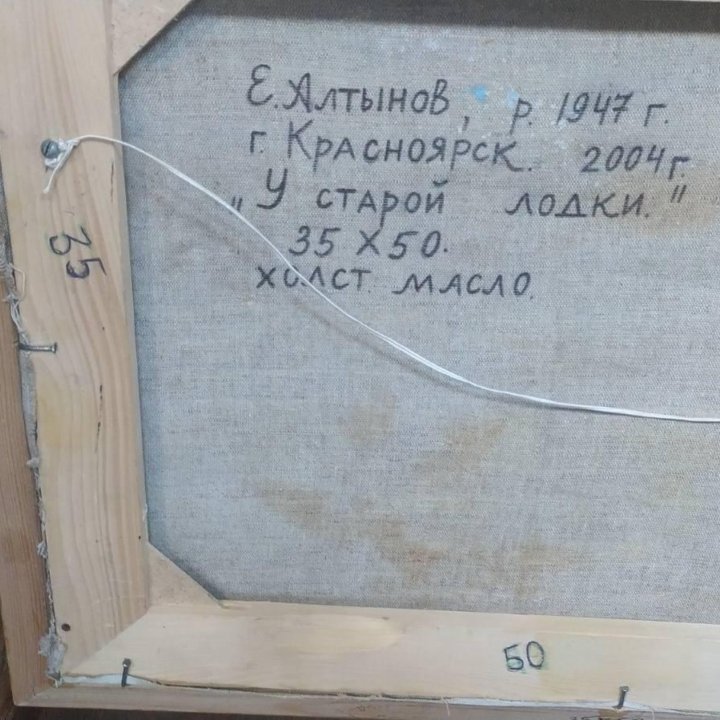 Е. Алтынов, р. 1947 г.
г. Красноярск. 2004 г.
„У старой лодки."
35 X 50.
холст. масло.
35
50